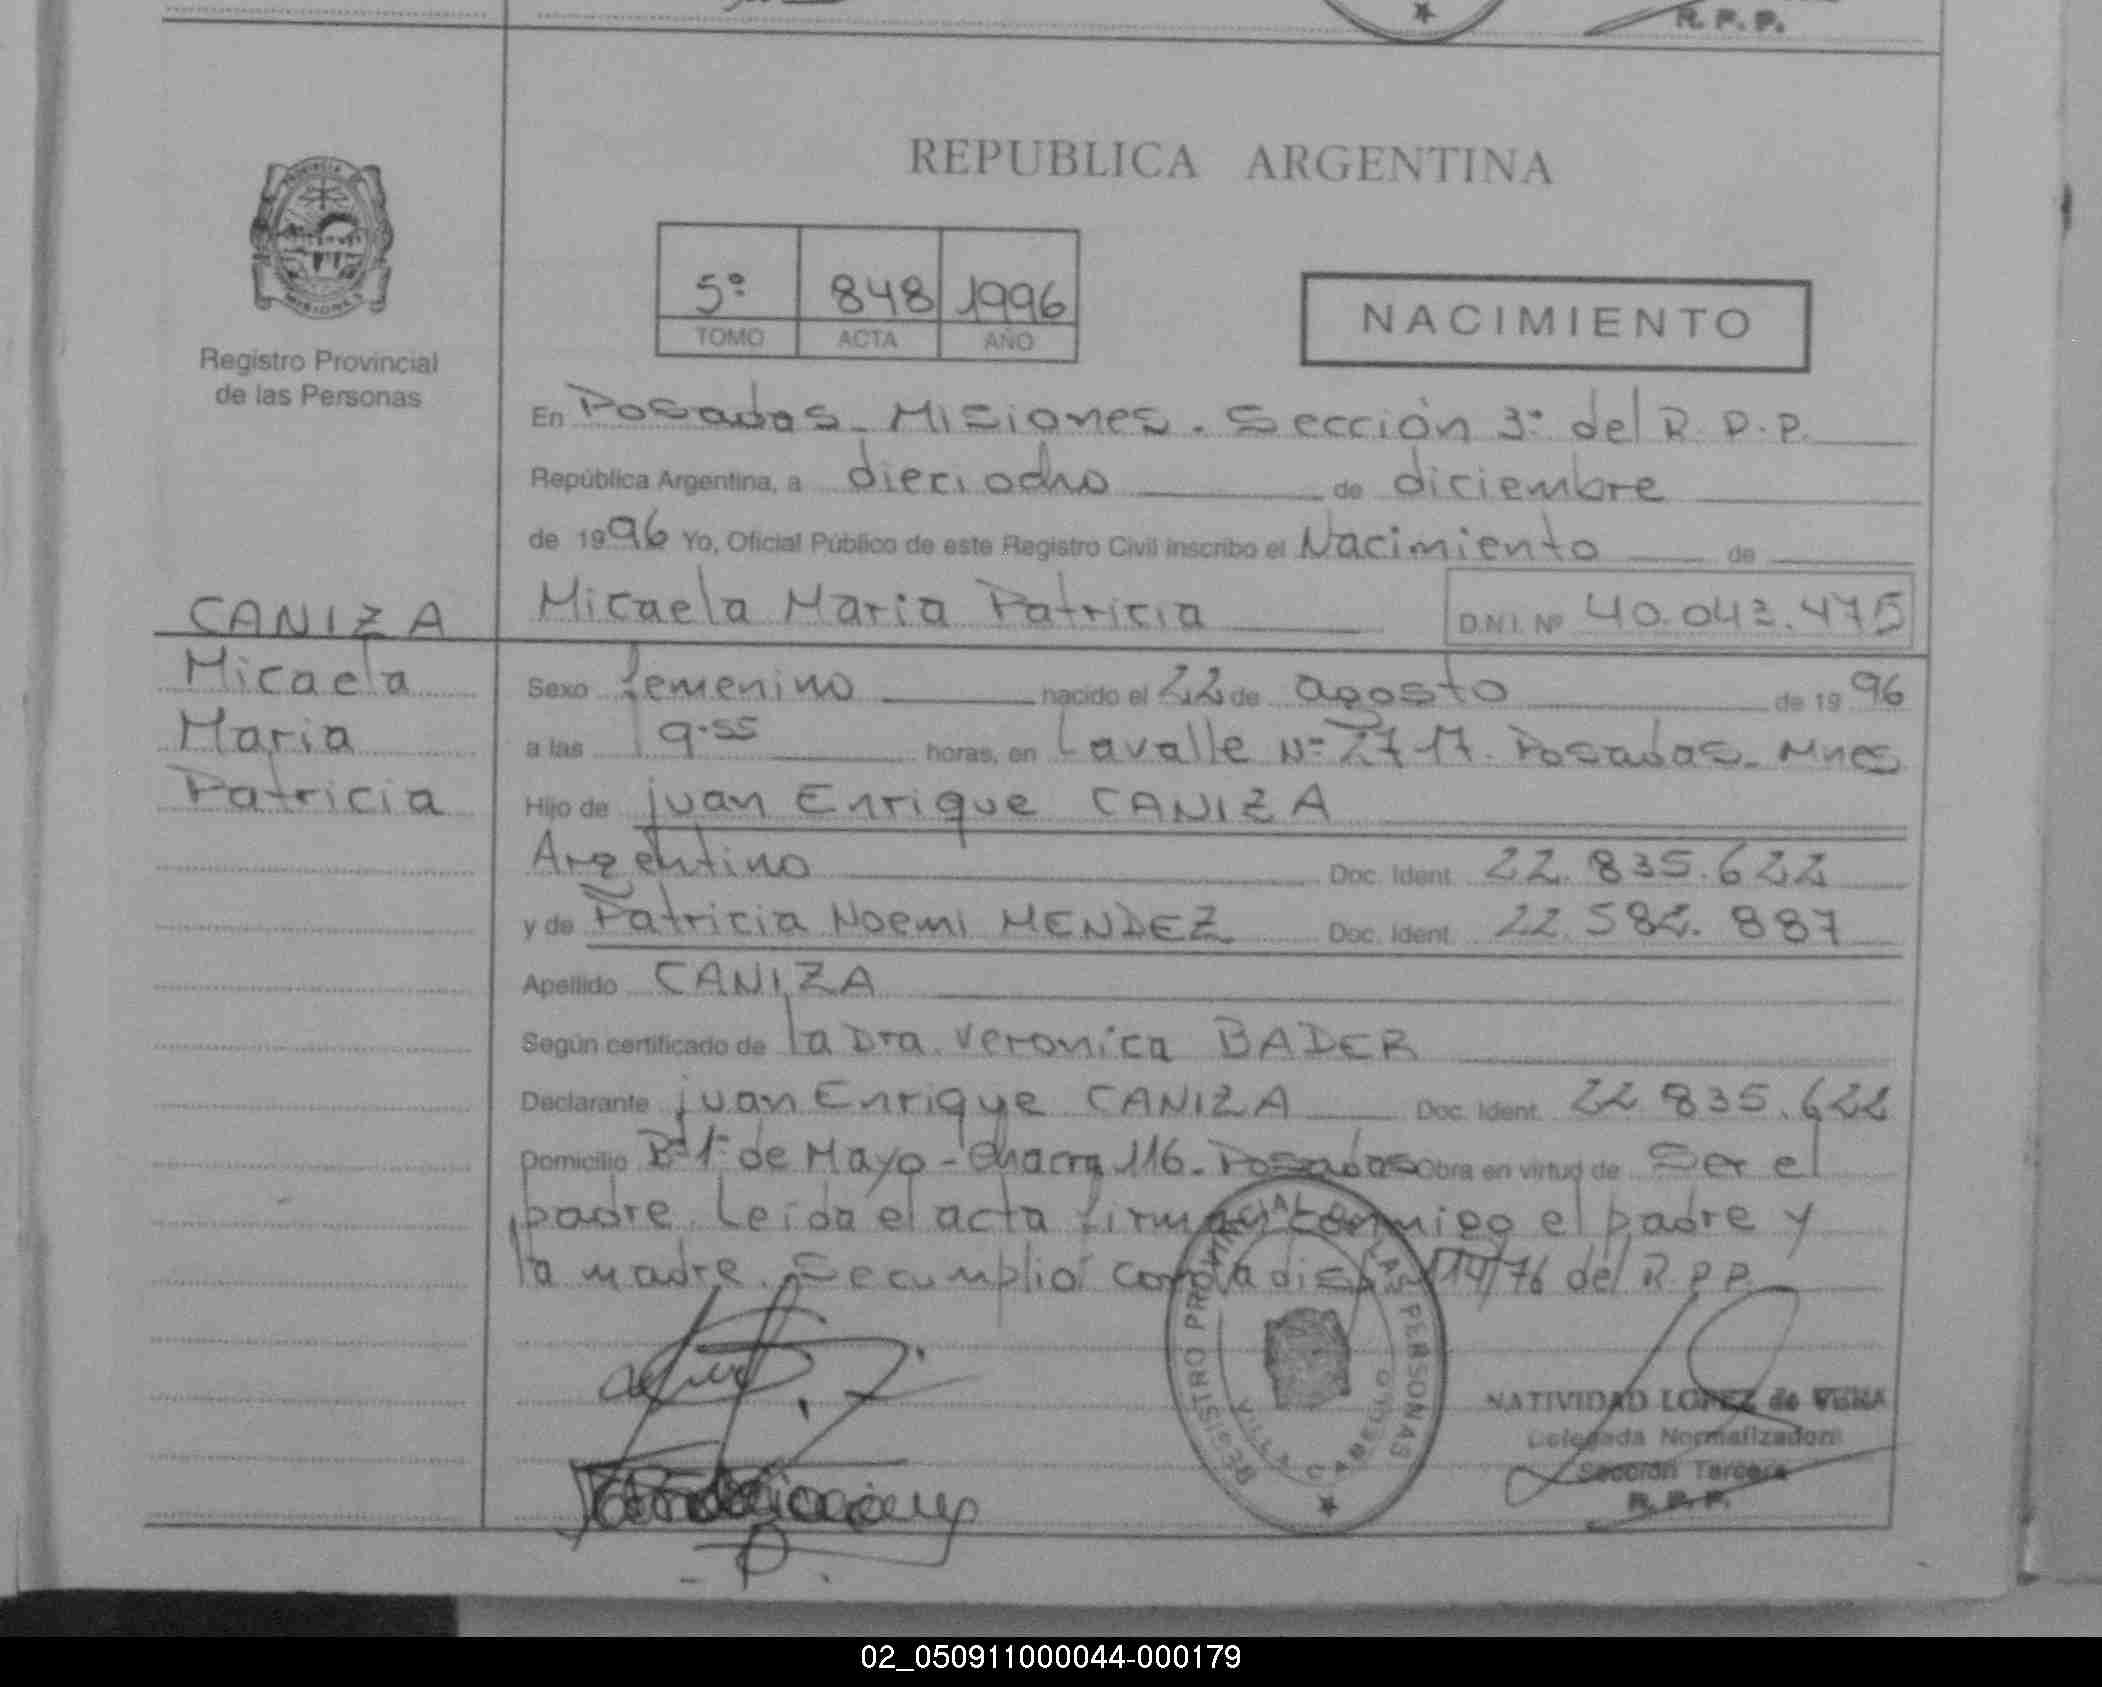 R. P. P.
REPUBLICA ARGENTINA
5º 848 1996
TOMO ACTA AÑO
NACIMIENTO
PROVINCIA DE
MISIONES
Registro Provincial
de las Personas
En Posadas - Misiones. Sección 3º del R. P. P.
República Argentina, a dieciocho de diciembre
de 1996 Yo, Oficial Público de este Registro Civil inscribo el Nacimiento de
Micaela Maria Patricia D.N.I. Nº 40.042.475
CANIZA
Micaela
Maria
Patricia
Sexo femenino nacido el 22 de agosto de 1996
a las 9.55 horas, en Lavalle Nº 2717. Posadas - Mnes
Hijo de juan Enrique CANIZA
Argentino Doc. Ident. 22.835.622
y de Patricia Noemi MENDEZ Doc. Ident. 22.582.887
Apellido CANIZA
Según certificado de la Dra. Veronica BADER
Declarante juan Enrique CANIZA Doc. Ident. 22.835.622
Domicilio Bº 1º de Mayo - Chacra 116 - Posadas Obra en virtud de Ser el
padre. Leida el acta firman conmigo el padre y
la madre. Se cumplió con la disp. 14/76 del R. P. P.
REGISTRO PROVINCIAL DE LAS PERSONAS
VILLA CABELLO
NATIVIDAD LOPEZ de VERA
Delegada Normalizadora
Sección Tercera
R. P. P.
02_050911000044-000179